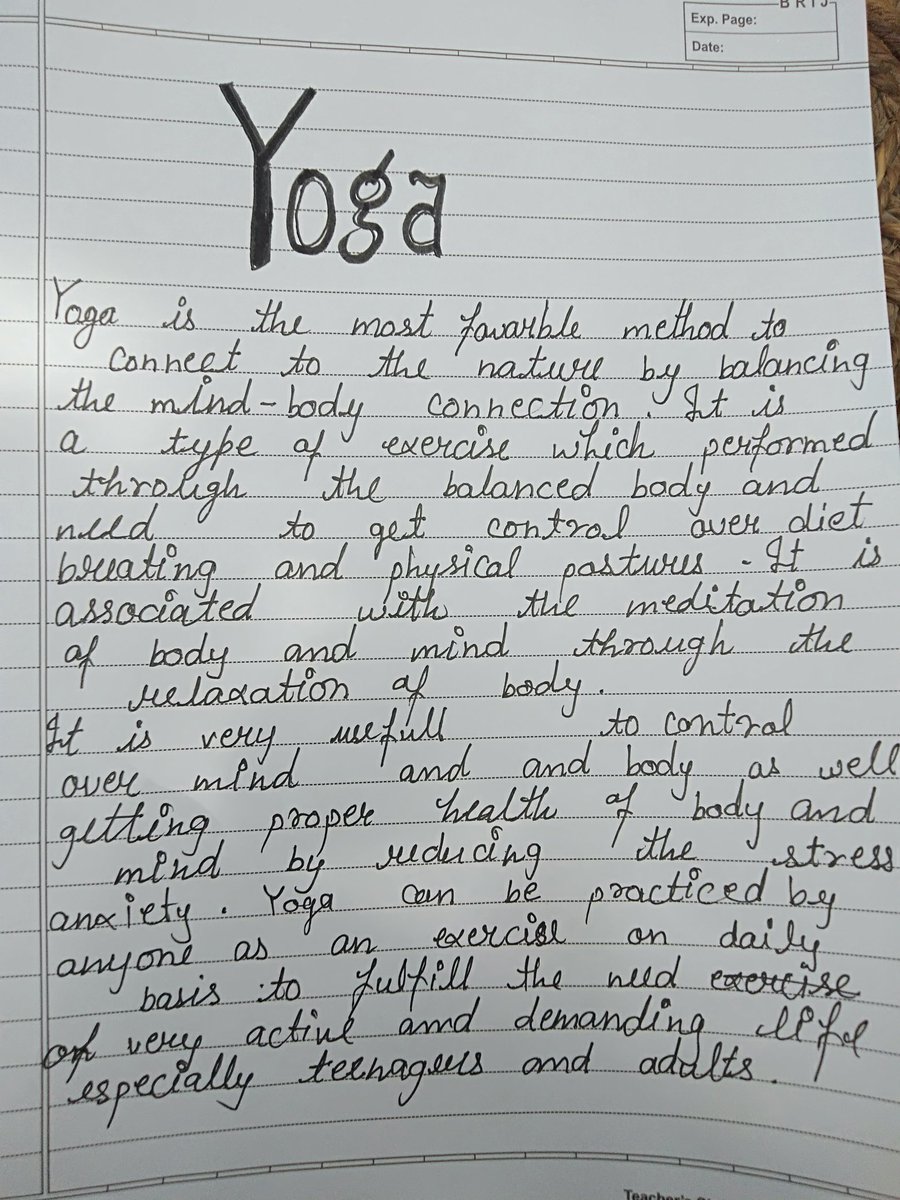 BRIJ
Exp. Page:
Date:
Yoga
Yoga is the most favarble method to
connect to the nature by balancing
the mind-body connection. It is
a type of exercise which performed
through the balanced body and
need to get control over diet
breating and physical postures. It is
associated with the meditation
of body and mind through the
relaxation of body.
It is very usefull to control
over mind and and body as well
getting proper health of body and
mind by reducing the stress
anxiety. Yoga can be practiced by
anyone as an exercise on daily
basis to fulfill the need exercise
of very active and demanding life
especially teenagers and adults.
Teacher's